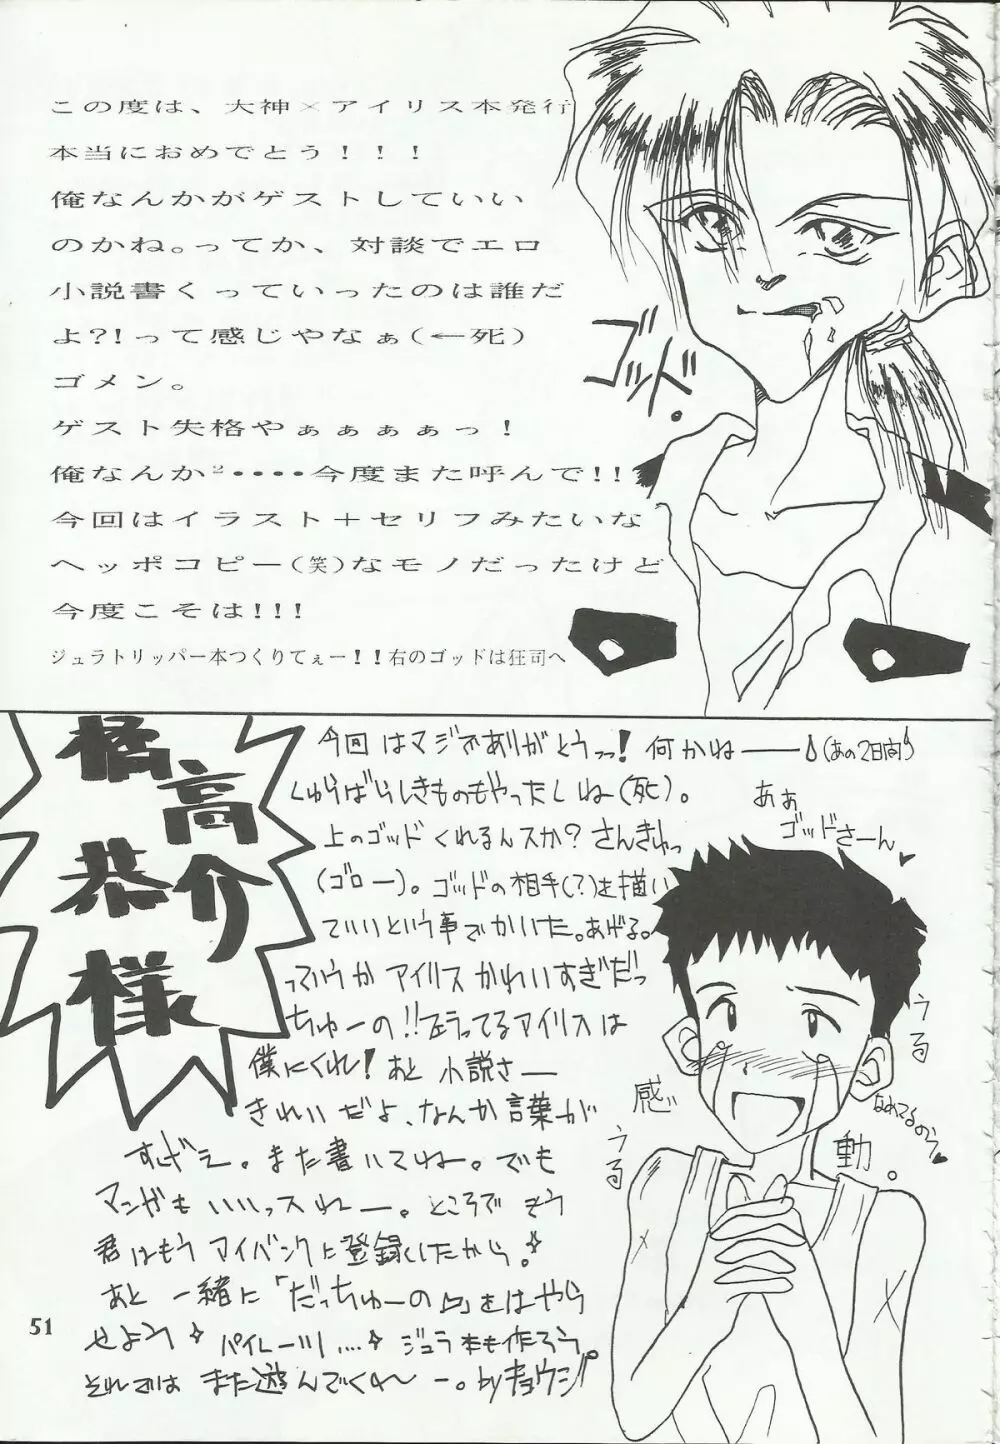 この度は、大神×アイリス本発行
本当におめでとう！！！
俺なんかがゲストしていい
のかね。ってか、対談でエロ
小説書くっていったのは誰だ
よ?!って感じやなぁ(←死)
ゴメン。
ゲスト失格やぁぁぁぁっ！
俺なんか²・・・・今度また呼んで!!
今回はイラスト＋セリフみたいな
ヘッポコピー(笑)なモノだったけど
今度こそは!!!
ジュラトリッパー本つくりてぇー！！右のゴッドは狂司へ
ゴッド。
橘
高
恭介様
今回はマジでありがとうっ！何かねーー(あの2日間)
しゅらばらしきものもやったしね(死)。
上のゴッドくれるんスか？さんきゅっ
(ゴロー)。ゴッドの相手(?)を描い
ていいという事でかいた。あげる。
っていうかアイリスかわいすぎだっ
ちゅーの!!るってるアイリスは
僕にくれ！あと小説さー
きれいだよ、なんか言葉が
すげえ。また書いてね。でも
マンガもいいっスねー。ところでもう
君はもうアイバンクに登録したから。
あと一緒に「だっちゅーの」をはやら
せよう パイレーツ……ジュラ本も作ろう。
それでは また遊んでくれ〜ー。byキョウジ
あぁ
ゴッドさーん
うる
うる
感
動。
51